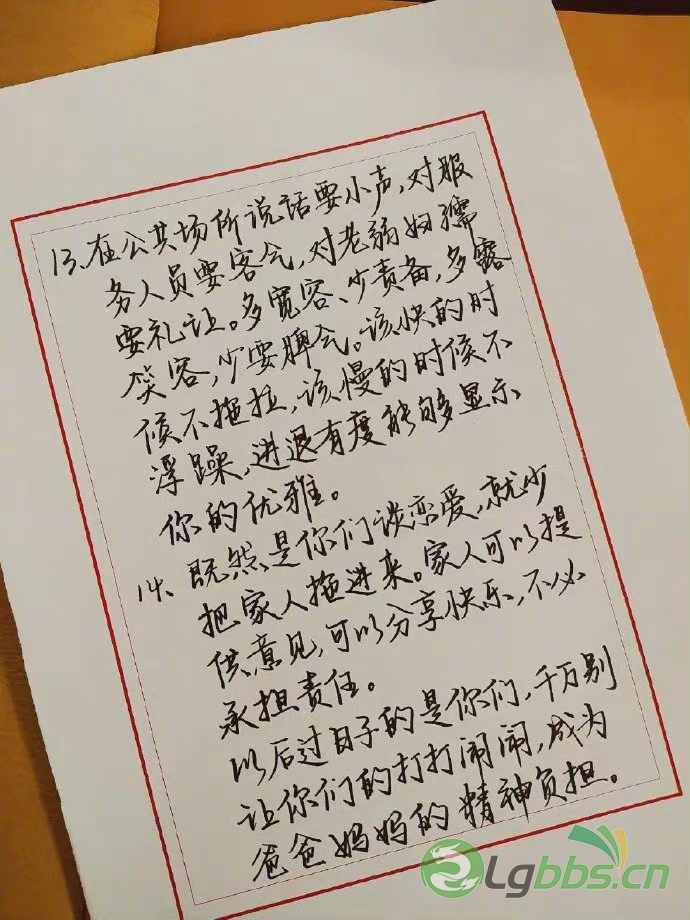 13、在公共场所说话要小声,对服
务人员要客气,对老弱妇孺
要礼让。多宽容、少责备,多露
笑容,少耍脾气。该快的时
候不拖拉,该慢的时候不
浮躁,进退有度能够显示
你的优雅。
14、既然是你们谈恋爱,就少
把家人拖进来。家人可以提
供意见,可以分享快乐,不必
承担责任。
以后过日子的是你们,千万别
让你们的打打闹闹,成为
爸爸妈妈的精神负担。
Lgbbs.cn